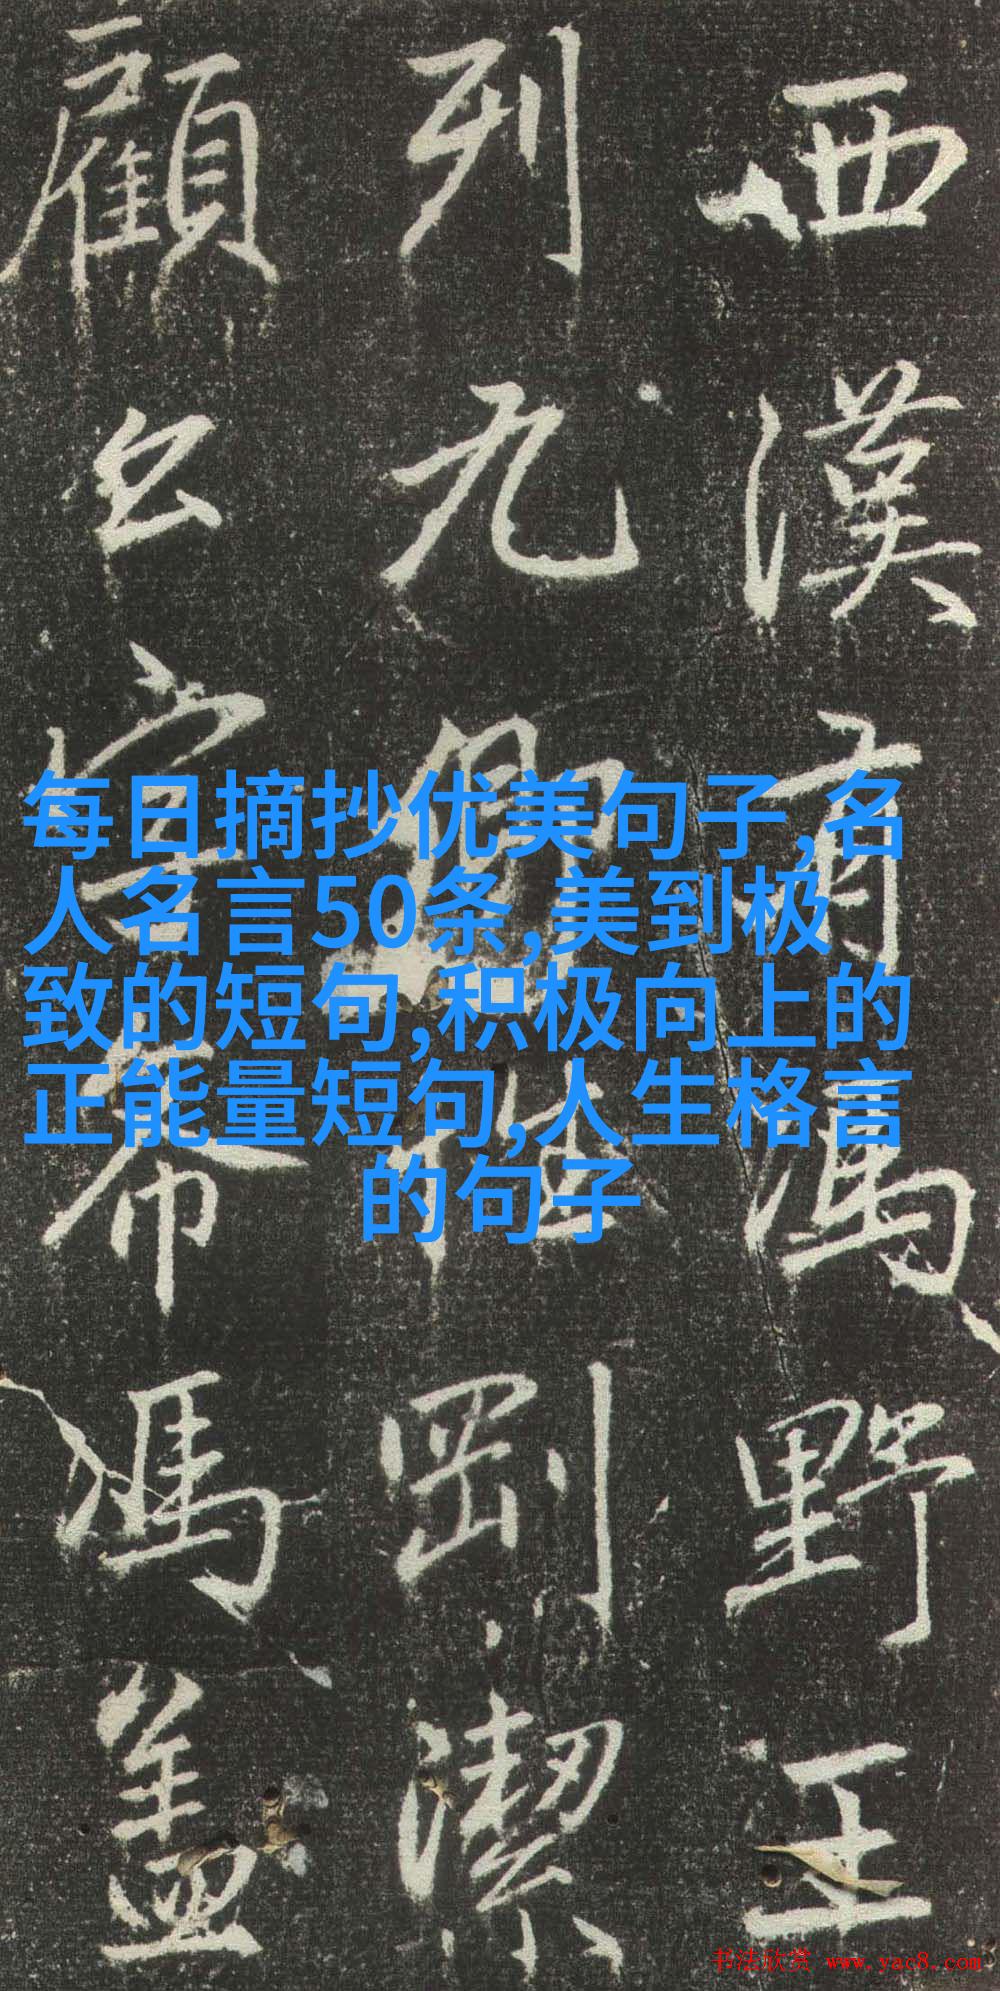 西漢有馮野王
列九卿
剛潔
顧
馮盖
每日摘抄优美句子,名
人名言50条,美到极
致的短句,积极向上的
正能量短句,人生格言
的句子
书法欣赏 www.yac8.com